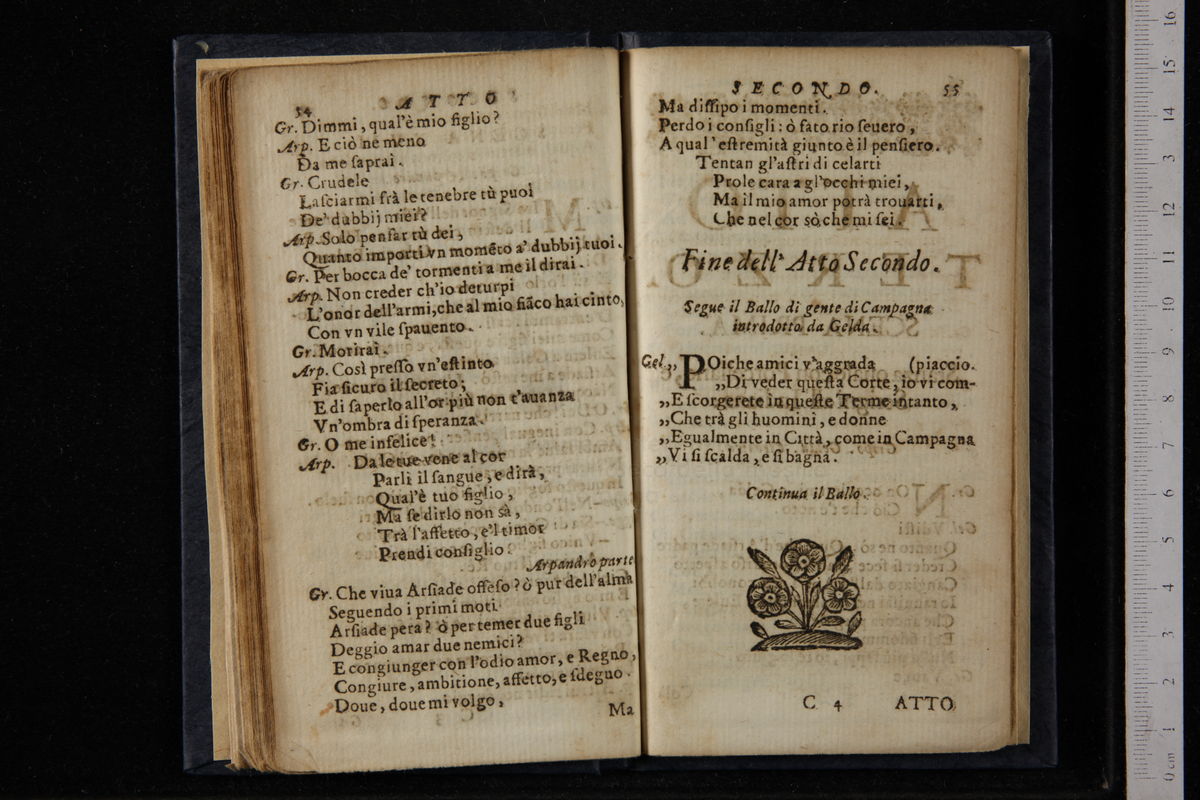 54 ATTO
Gr. Dimmi, qual'è mio figlio?
Arp. E ciò ne meno
Da me saprai.
Gr. Crudele
Lasciarmi frà le tenebre tù puoi
De' dubbij miei?
Arp. Solo pensar tù dei,
Quanto importi vn momẽto a' dubbij tuoi.
Gr. Per bocca de' tormenti a me il dirai.
Arp. Non creder ch'io deturpi
L'onor dell'armi, che al mio fiãco hai cinto,
Con vn vile spauento.
Gr. Morirai.
Arp. Così presso vn'estinto
Fia sicuro il secreto;
E di saperlo all'or più non t'auanza
Vn'ombra di speranza.
Gr. O me infelice!
Arp. Da le tue vene al cor
Parli il sangue, e dirà,
Qual'è tuo figlio,
Ma se dirlo non sà,
Trà l'affetto, e'l timor
Prendi consiglio.
Arpandro parte
Gr. Che viua Arsiade offeso? ò pur dell'alma
Seguendo i primi moti
Arsiade pera? ò per temer due figli
Deggio amar due nemici?
E congiunger con l'odio amor, e Regno,
Congiure, ambitione, affetto, e sdegno.
Doue, doue mi volgo,
Ma
SECONDO. 55
Ma dissipo i momenti.
Perdo i consigli: ò fato rio seuero,
A qual' estremità giunto è il pensiero.
Tentan gl'astri di celarti
Prole cara a gl'occhi miei,
Ma il mio amor potrà trouarti,
Che nel cor sò, che mi sei.
Fine dell' Atto Secondo.
Segue il Ballo di gente di Campagna
introdotto da Gelda.
Gel. „ POiche amici v'aggrada (piaccio.
„Di veder questa Corte, io vi com-
„E scorgerete in queste Terme intanto,
„Che trà gli huomini, e donne
„Egualmente in Città, come in Campagna
„Vi si scalda, e si bagna.
Continua il Ballo.
C 4 ATTO
0 cm 1 2 3 4 5 6 7 8 9 10 11 12 13 14 15 16